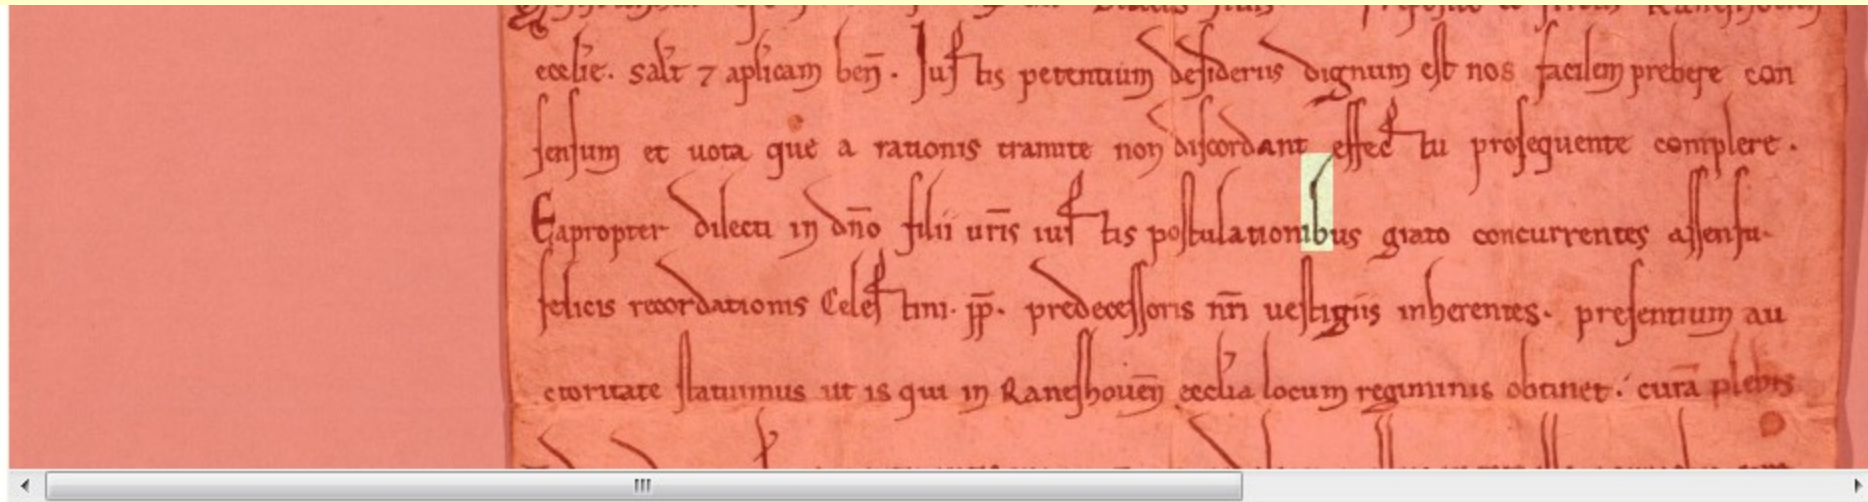 eccl̅ie. sal̅t ⁊ apl̅icam ben̅. Iustis petentium desideriis dignum est nos facilem prebere con
sensum et uota que a rationis tramite non discordant effectu prosequente complere.
Eapropter dilecti in dn̅o filii ur̅is iustis postulationibus grato concurrentes assensu.
felicis recordationis Celestini. pp̅. predecessoris nr̅i uestigiis inherentes. presentium au
ctoritate statuimus ut is qui in Ranshouen̅ eccl̅ia locum regiminis obtinet. cura̅ plebis